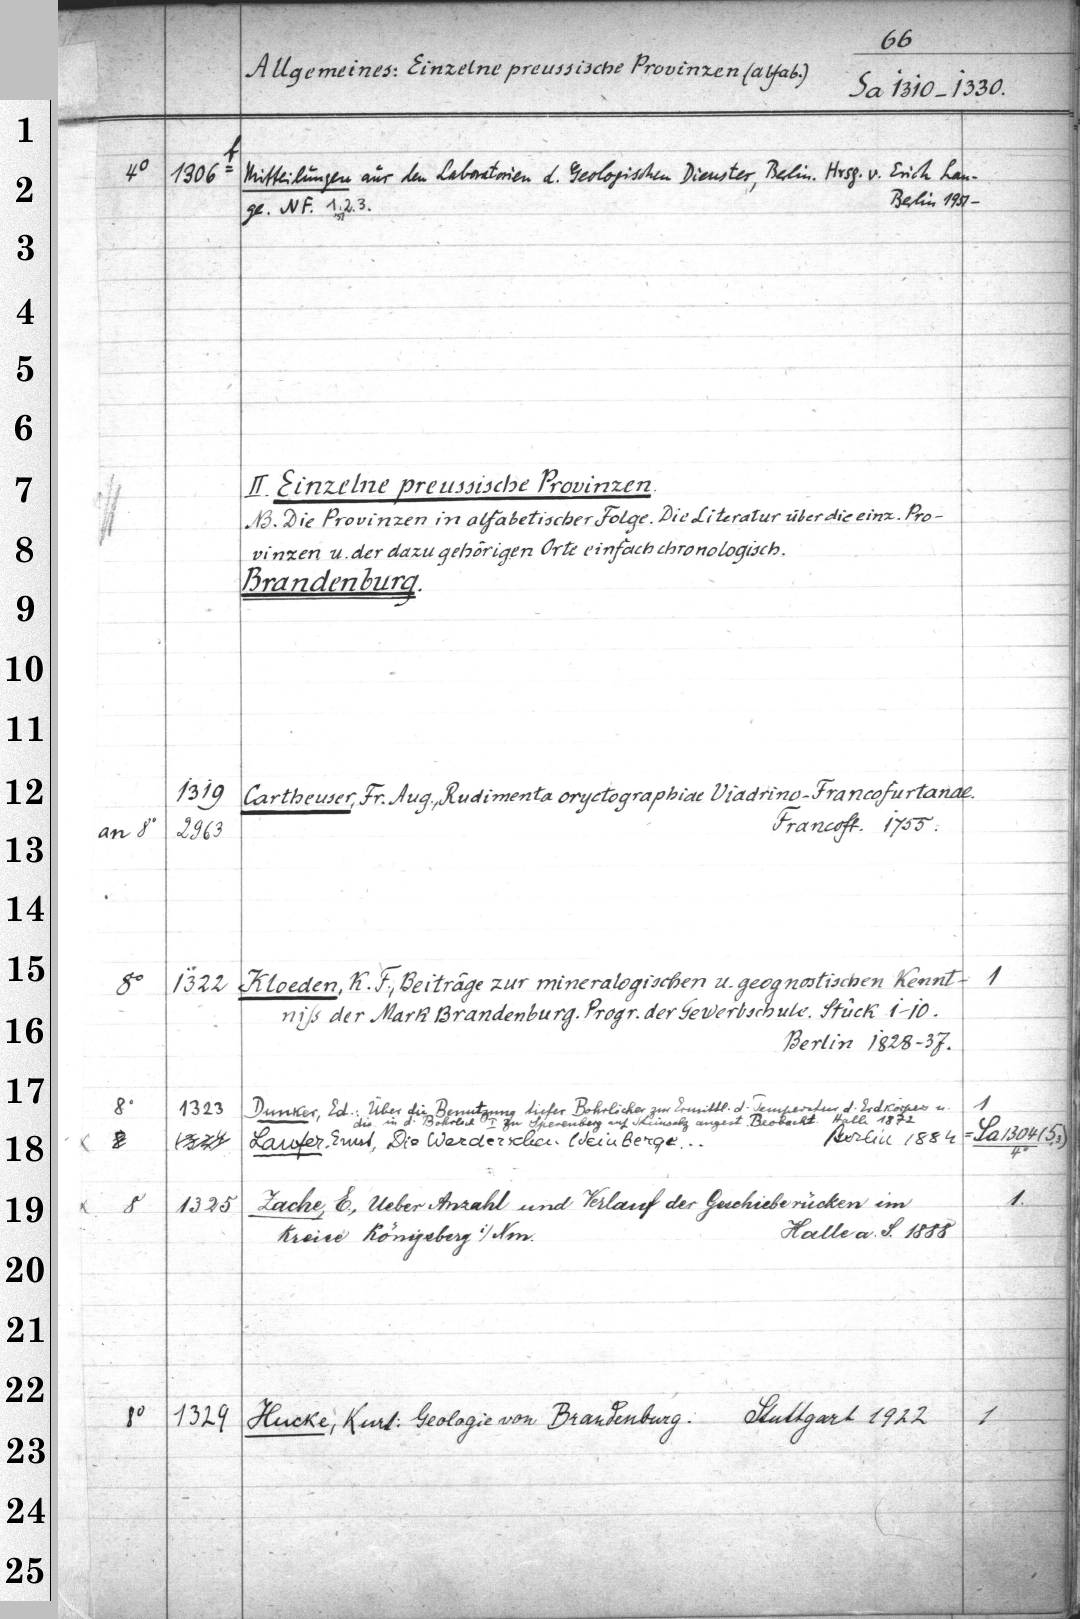 66
Allgemeines: Einzelne preussische Provinzen (alfab.)
Sa 1310-1330.
4° 1306 f Mitteilungen aus den Laboratorien d. Geologischen Dienstes, Berlin. Hrsg. v. Erich Lan-
ge. NF. 1.2.3. Berlin 1951-
II. Einzelne preussische Provinzen.
NB. Die Provinzen in alfabetischer Folge. Die Literatur über die einz. Pro-
vinzen u. der dazu gehörigen Orte einfach chronologisch.
Brandenburg.
1319 Cartheuser, Fr. Aug., Rudimenta oryctographiae Viadrino-Francofurtanae.
an 8° 2963 Francoft. 1755.
8° 1322 Kloeden, K. F., Beiträge zur mineralogischen u. geognostischen Kennt- 1
niss der Mark Brandenburg. Progr. der Gewerbschule. Stück 1-10.
Berlin 1828-37.
8° 1323 Dunker, Ed.: Über die Benutzung tiefer Bohrlöcher zur Ermittl. d. Temperatur d. Erdkörpers u. 1
die in d. Bohrloch I zu Sperenberg auf Steinsalz angest. Beobacht. Halle 1872
8 1324 Laufer, Ernst, Die Werderschen Weinberge... Berlin 1884 = Sa 1304 (5,3)
4°
8 1325 Zache, E., Ueber Anzahl und Verlauf der Geschieberücken im 1.
Kreise Königsberg i/Nm. Halle a. S. 1888
8° 1329 Hucke, Kurt: Geologie von Brandenburg. Stuttgart 1922 1
1
2
3
4
5
6
7
8
9
10
11
12
13
14
15
16
17
18
19
20
21
22
23
24
25